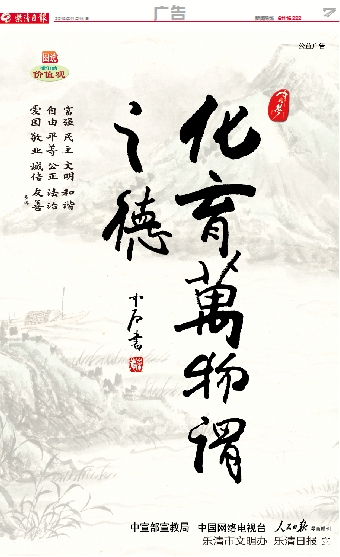 乐清日报
广告
7
公益广告
价值观
化育萬物谓
之德
富强 民主 文明 和谐
自由 平等 公正 法治
爱国 敬业 诚信 友善
中宣部宣教局 中国网络电视台 人民日报
乐清市文明办 乐清日报 宣